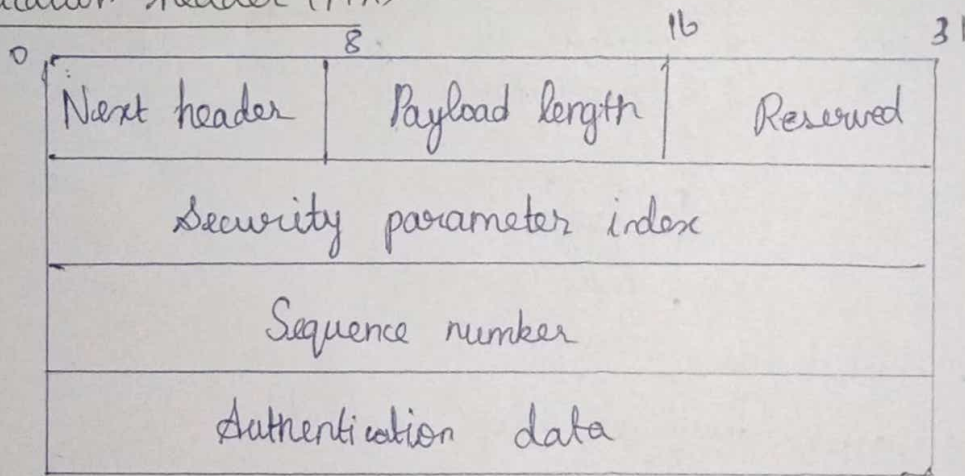 header (AH)
0 8 16 31
Next header Payload length Reserved
Security parameter index
Sequence number
Authentication data